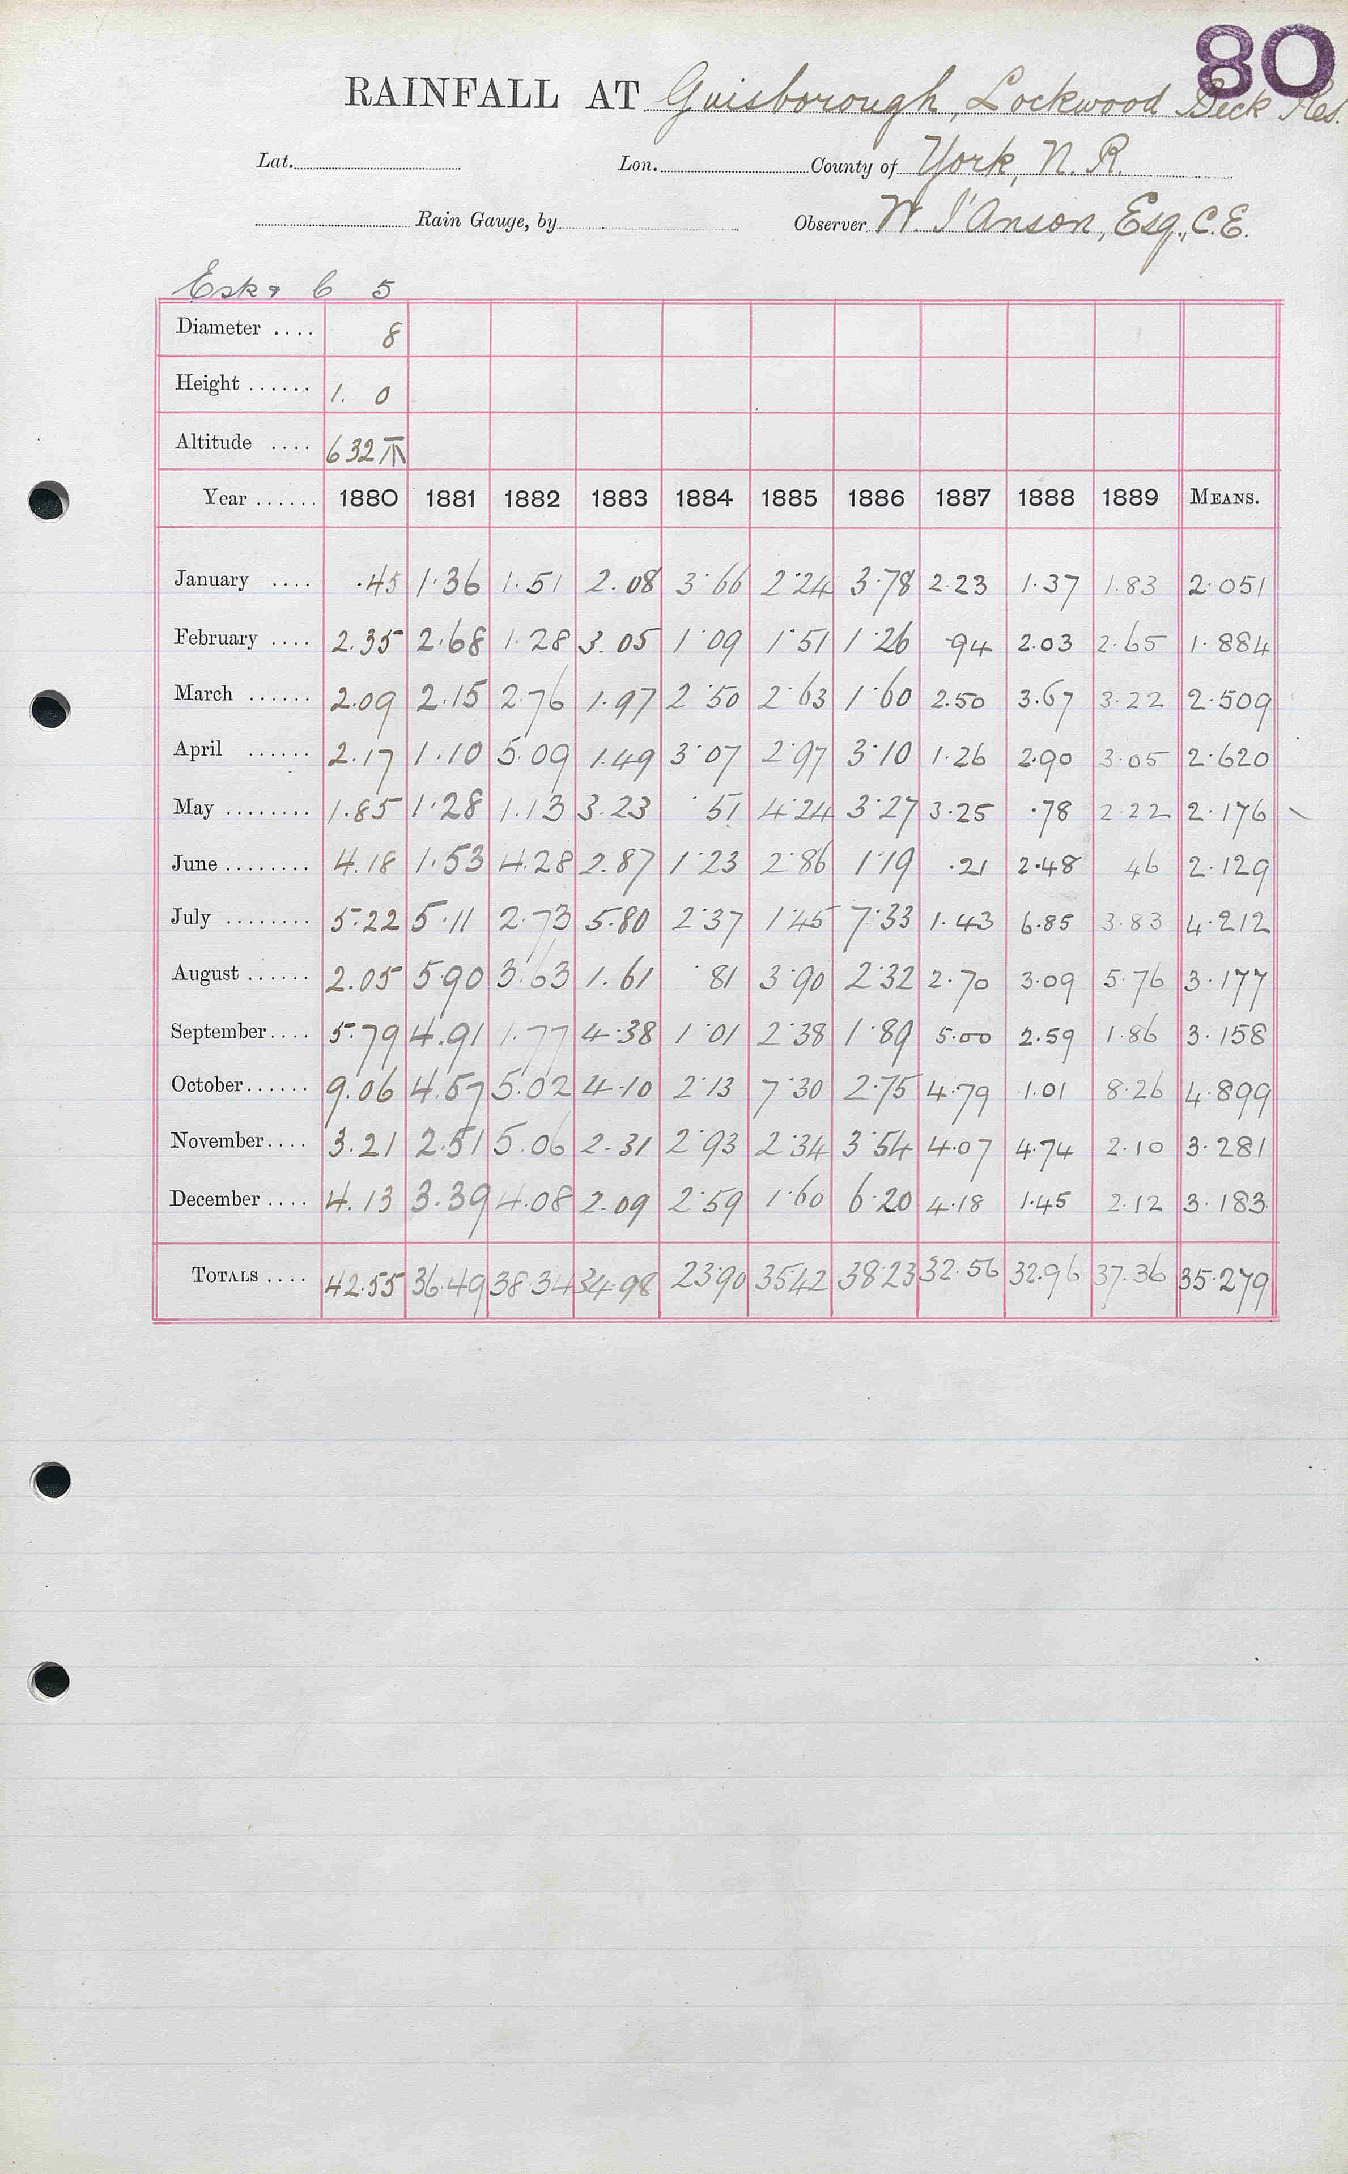 80
RAINFALL AT Guisborough, Lockwood Beck Res.
Lat. Lon. County of York, N. R.
Rain Gauge, by Observer W. I'Anson, Esq., C.E.
5
Diameter .... 8
Height ...... 1. 0
Altitude .... 632
Year ...... 1880 1881 1882 1883 1884 1885 1886 1887 1888 1889 MEANS.
January .... .45 1.36 1.51 2.08 3.66 2.24 3.78 2.23 1.37 1.83 2.051
February .... 2.35 2.68 1.28 3.05 1.09 1.51 1.26 .94 2.03 2.65 1.884
March ...... 2.09 2.15 2.76 1.97 2.50 2.63 1.60 2.50 3.67 3.22 2.509
April ...... 2.17 1.10 5.09 1.49 3.07 2.97 3.10 1.26 2.90 3.05 2.620
May ........ 1.85 1.28 1.13 3.23 .51 4.24 3.27 3.25 .78 2.22 2.176
June ........ 4.18 1.53 4.28 2.87 1.23 2.86 1.19 .21 2.48 46 2.129
July ........ 5.22 5.11 2.73 5.80 2.37 1.45 7.33 1.43 6.85 3.83 4.212
August ...... 2.05 5.90 3.63 1.61 .81 3.90 2.32 2.70 3.09 5.76 3.177
September.... 5.79 4.91 1.77 4.38 1.01 2.38 1.89 5.00 2.59 1.86 3.158
October...... 9.06 4.57 5.02 4.10 2.13 7.30 2.75 4.79 1.01 8.26 4.899
November.... 3.21 2.51 5.06 2.31 2.93 2.34 3.54 4.07 4.74 2.10 3.281
December .... 4.13 3.39 4.08 2.09 2.59 1.60 6.20 4.18 1.45 2.12 3.183
TOTALS .... 42.55 36.49 38.34 34.98 23.90 35.42 38.23 32.56 32.96 37.36 35.279